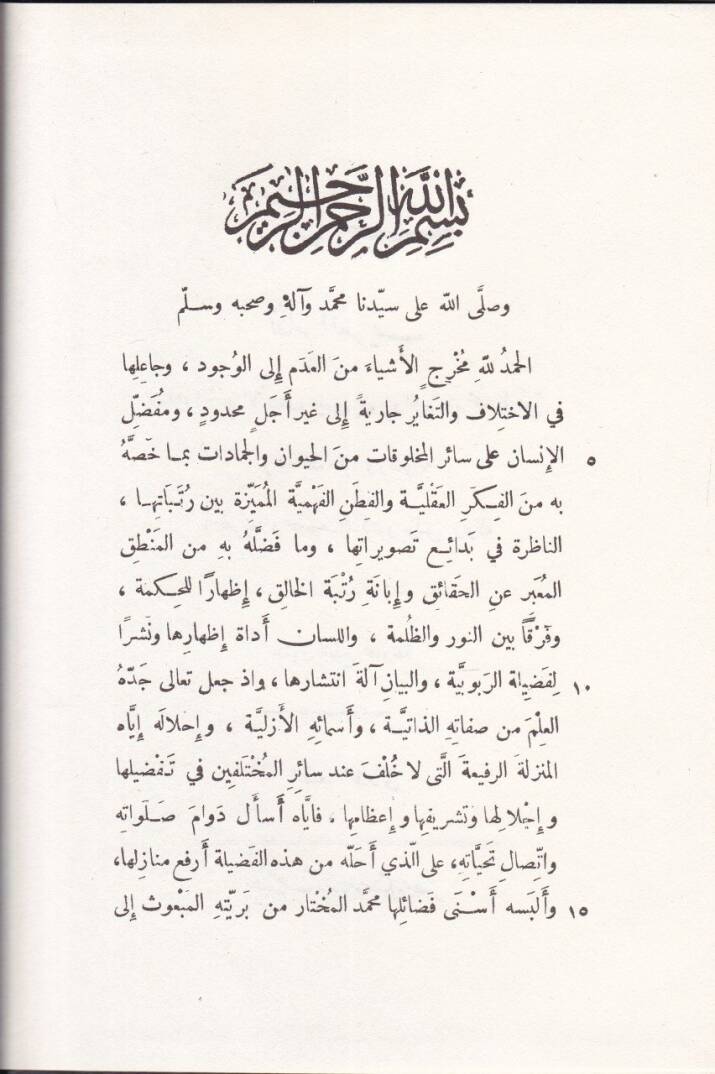 بِسْمِ اللَّهِ الرَّحْمٰنِ الرَّحِيمِ
وصلَّى اللّه على سيّدنا محمَّد وآلهِ وصحبه وسلّم
الحمدُ للّهِ مُخْرِجِ الأَشياءَ منَ العَدَم إِلى الوُجود ، وجاعلِها
في الاختِلاف والتَغايُر جاريةً إِلى غيرِ أَجَلٍ محدودٍ ، ومُفَضِّلِ
الإِنسان على سائر المخلوقات منَ الحيوان والجمادات بمـا خَصَّهُ ٥
به منَ الفِـكَرِ العَقْليَّـة والفِطَنِ الفَهْميَّة المُمَيِّزة بين رُتَبَاتِهـا ،
الناظرة في بَدائِـع تَصويراتِها ، وما فَضَّلَهُ بهِ من المَنْطِق
المُعَبر عنِ الحَقائق وإِبانَةِ رُتْبَة الخالِق ، إِظهارًا للحِـكمة ،
وفَرْقًا بين النور والظُلمة ، واللسان أَداة إِظهارِها ونَشرًا
لِفَضيلة الرَبوبيَّة ، والبيانِ آلةَ انتشارها ، وإذ جعل تعالى جَدّهُ ١٠
العِلْمَ من صفاتِهِ الذاتيَّـة ، وأَسمائِهِ الأَزليَّة ، وإحلالَه إيَّاه
المنزلةَ الرفيعةَ الَّتى لا خُلْفَ عند سائرِ المُخْتلفين في تَفْضيلها
وإِجْلالِها وتَشريفِها وإعظامِها ، فايَّاه أَسأَل دَوامَ صَـلَواتِه
واتِّصالِ تحيَّاتِه، على الّذي أَحَلّه من هذه الفَضيلة أَرفع منازلِها،
وأَلبَسه أَسْـنَى فَضائلِها محمَّد المُختار من بَريّتِهِ المَبْعوث إلى ١٥